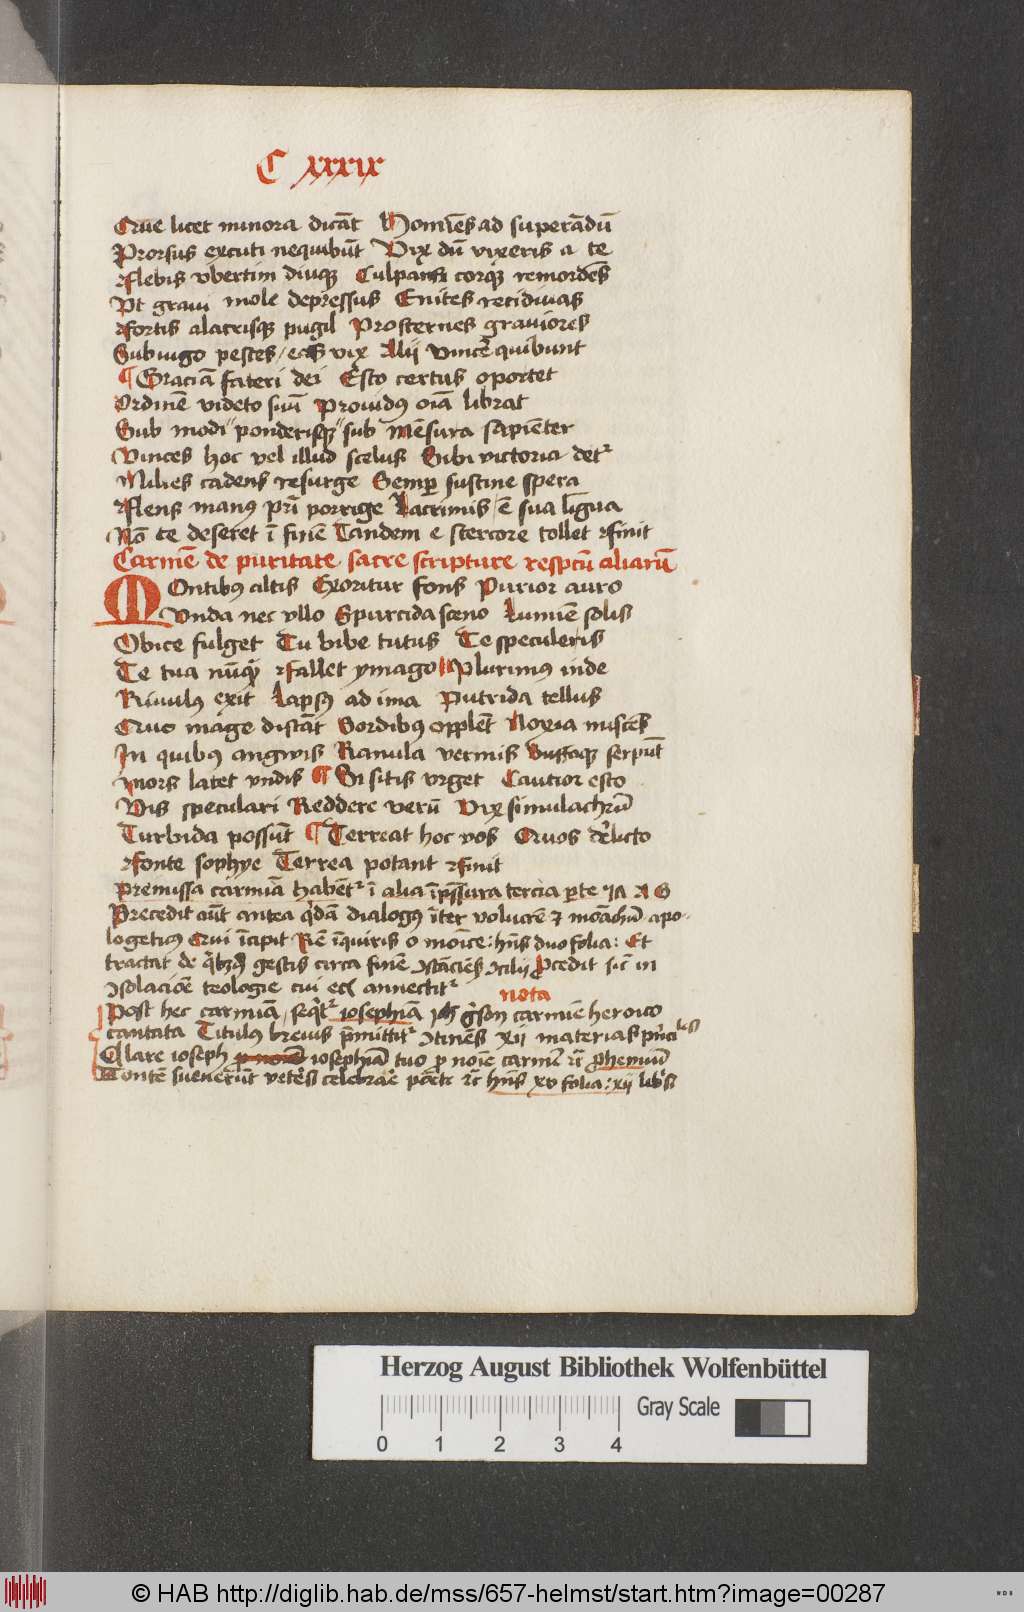 C xxxix
Que licet minora dicāt Homīes ad superādū
Prorsus excuti nequibūt Vix dū vixeris a te
Flebis vbertim diuqȝ Culpans corqȝ remordēs
Vt graui mole depressus Enites recidiuas
Fortis alacrisqȝ pugil Prosternes grauiores
Subiugo pestes / vix Alij vincē quibunt
¶ Graciā fateri dei Esto certus oportet
Ordinē videto suū Prouidꝰ oīa librat
Sub modi ponderisqȝ sub mēsura sapiēter
Vinces hoc vel illud scelus Sibi victoria detᷣ
Milies cadens resurge Semꝑ sustine spera
Flens manꝰ pri porrige Lacrimis / ē sua līgua
Nō te deseret ī finē Tandem e stercore tollet Finit
Carmē de puritate sacre scripture respctū aliarū
MOntibꝰ altis Exoritur fons Purior auro
Vnda nec vllo Spurcida sceno Lumīe solis
Obice fulget Tu bibe tutus Te speculeris
Te tua nūqȝ Fallet ymago ¶ Plurimꝰ inde
Riuulꝰ exit Lapsꝰ ad ima Putrida tellus
Quo mage distāt Sordibꝰ opplēt Noxia miscēs
In quibꝰ angwis Ranula vermis Buffoqȝ serpūt
Mors latet vndis ¶ Si sitis vrget Cautior esto
Vis speculari Reddere verū Vix simulachrū
Turbida possūt ¶ Terreat hoc vos Quos dĕlicto
Fonte sophye Terrea potant Finit
Premissa carmīa habētᷣ ī alia īpssura tercia ꝑte A G
Precedit aūt antea qͥdā dialogꝰ īter volucrē ⁊ moāchū apo-
logeticꝰ Qui īcipit Rē īquiris o moīce: hn̄s duo folia: Et
tractat de gestis circa finē ꝯstāciēs ꝯcilij ꝓcedit sic̄ in
ꝯsolacioē teologie cui annectitᷣ
nota
Post hec carmīa, seqͥtᷣ iosephīa gͥson carmīe heroico
cantata Titulꝰ breuis p̄mittitᷣ ꝯtinēs xij materias pͥncīles
Clare ioseph iosephīa tuo ꝑ noīe carmē ꝓhemiū
celebrāe hn̄s xv folia: xij libͦs
Herzog August Bibliothek Wolfenbüttel
0 1 2 3 4
Gray Scale
© HAB http://diglib.hab.de/mss/657-helmst/start.htm?image=00287